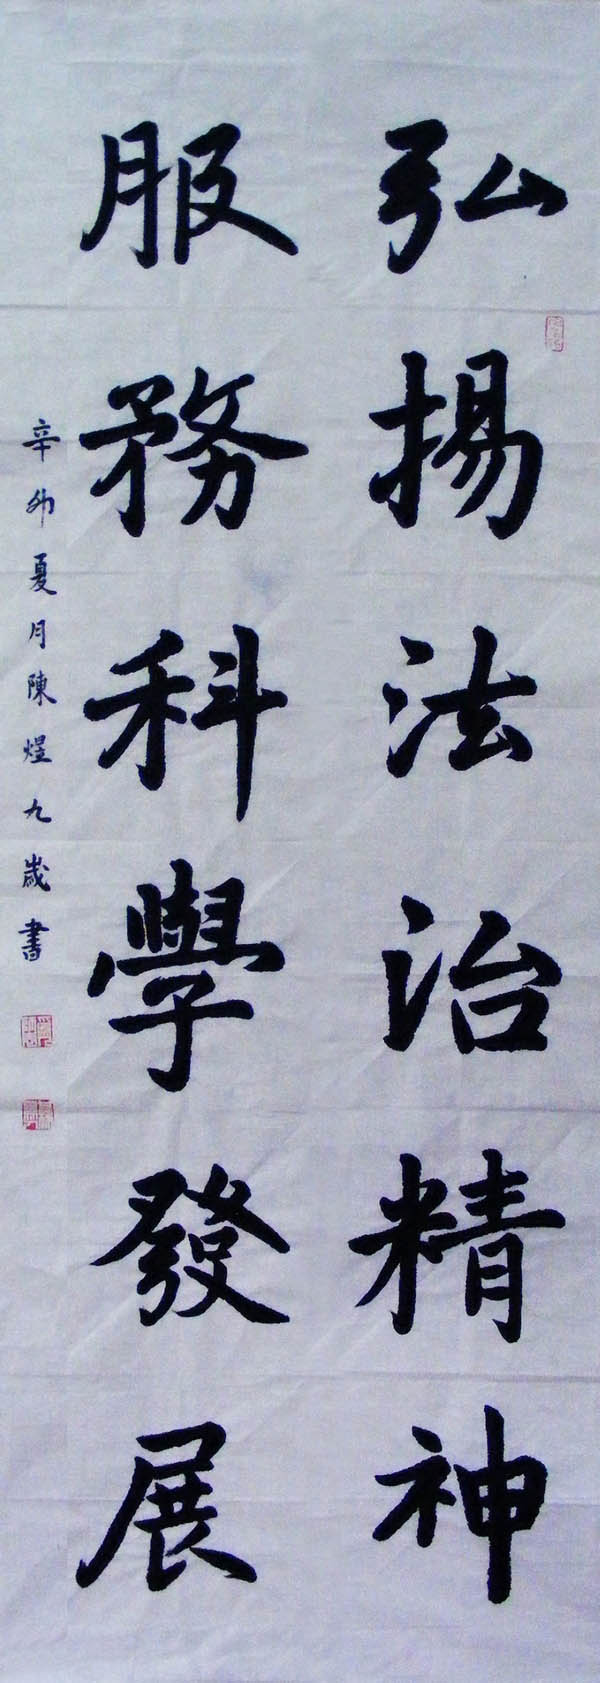 弘揚法治精神
服務科學發展
辛卯夏月陳煜九歲書